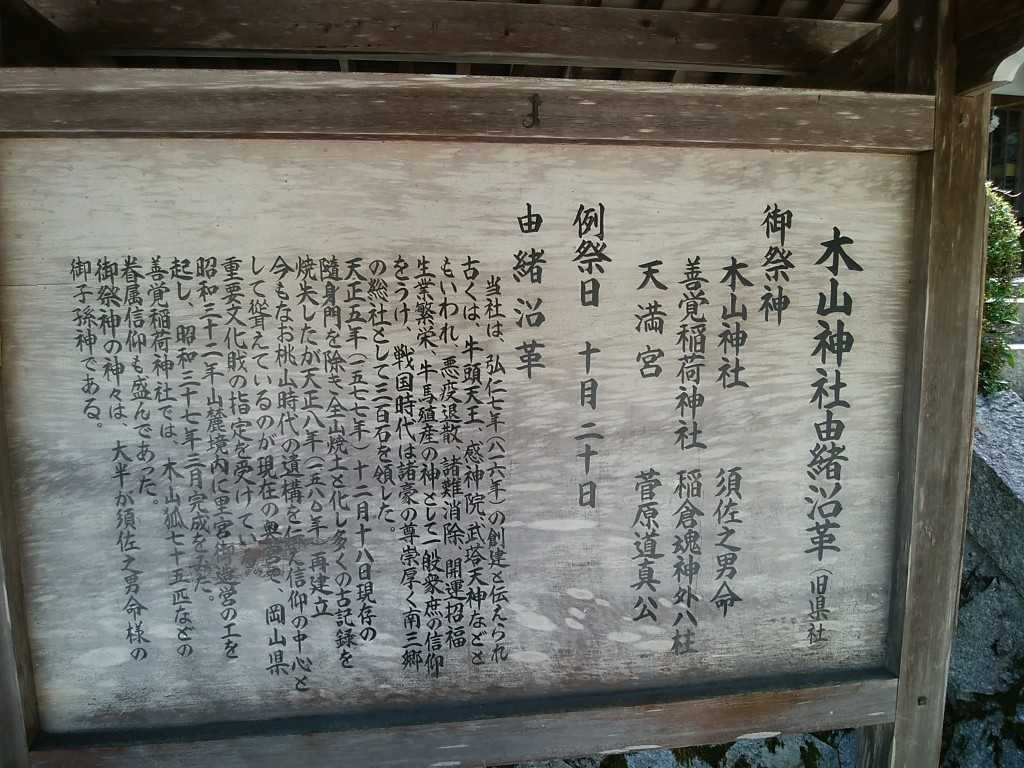 木山神社由緒沿革（旧県社）
御祭神
木山神社　須佐之男命
善覚稲荷神社　稲倉魂神外八柱
天満宮　菅原道真公
例祭日　十月二十日
由緒沿革
当社は、弘仁七年（八一六年）の創建と伝えられ
古くは、牛頭天王、感神院、武塔天神などと
もいわれ、悪疫退散、諸難消除、開運招福
生業繁栄、牛馬殖産の神として一般衆庶の信仰
をうけ、戦国時代は諸豪の尊崇厚く南三郷
の総社として三百石を領した。
天正五年（一五七七年）十二月十八日現存の
隨身門を除き全山焼土と化し多くの古記録を
焼失したが天正八年（一五八〇年）再建立
今もなお桃山時代の遺構を伝え信仰の中心と
して聳えているのが現在の奥で、岡山県
重要文化財の指定を受けてい
昭和三十二年山麓境内に里宮御造営の工を
起し、昭和三十七年三月完成をみた。
善覚稲荷神社では、木山狐七十五匹などの
眷属信仰も盛んであった。
御祭神の神々は、大半が須佐之男命様の
御子孫神である。